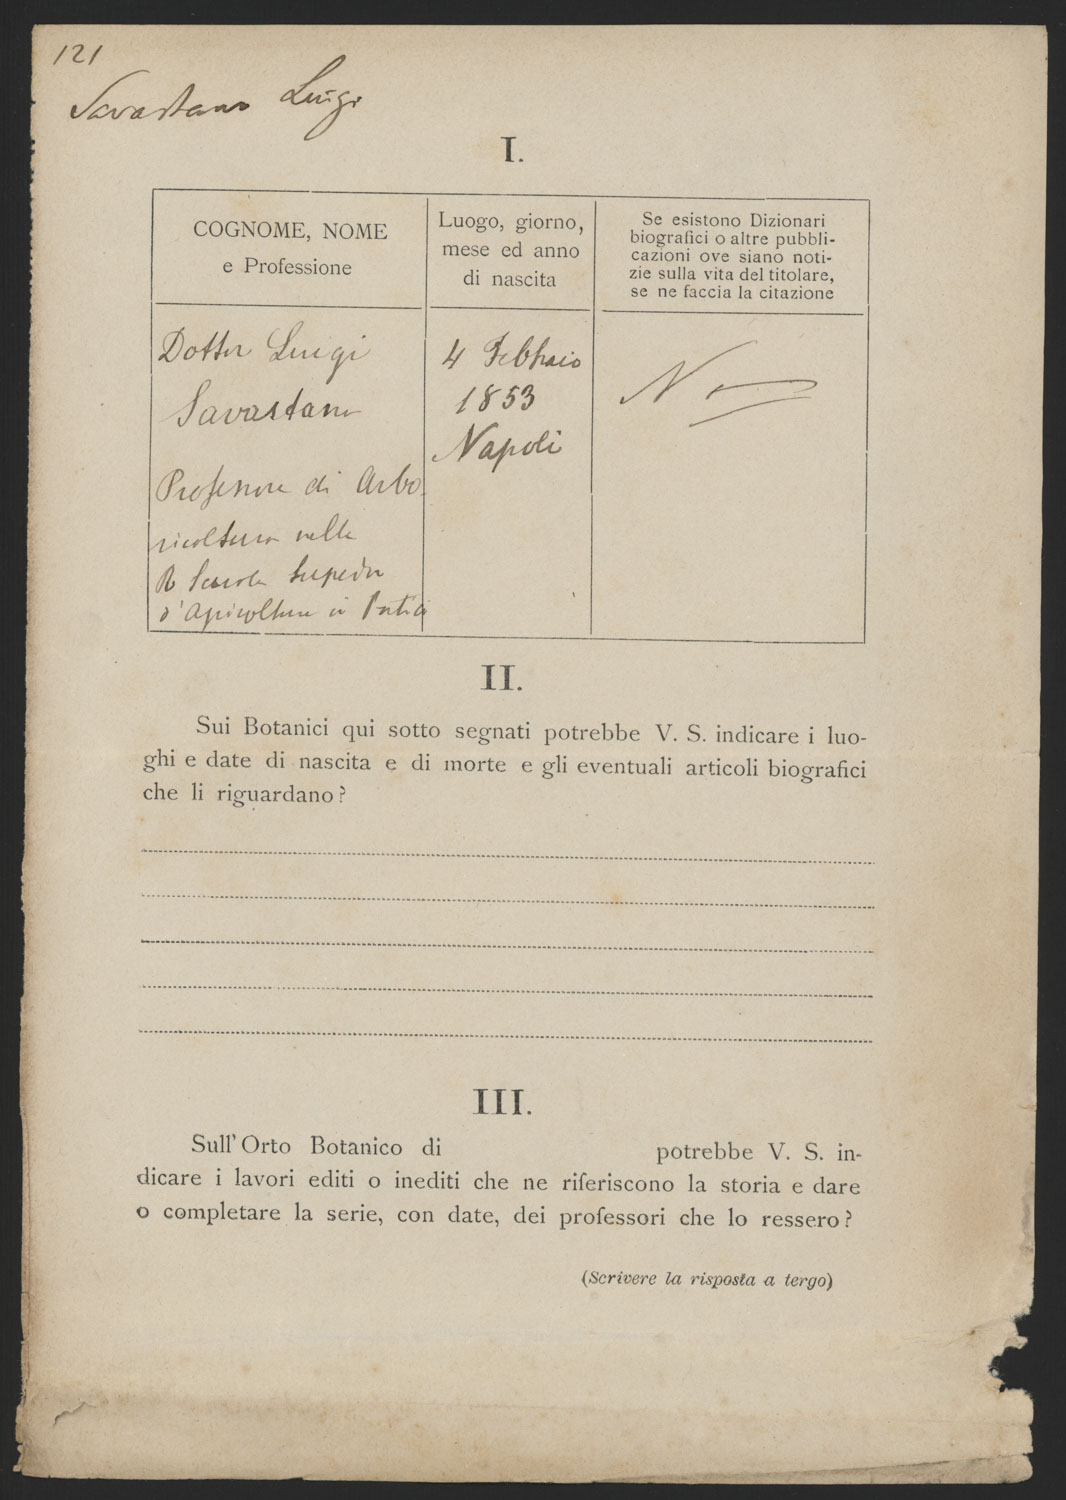 121
Savastano Luigi
I.
COGNOME, NOME
e Professione
Luogo, giorno,
mese ed anno
di nascita
Se esistono Dizionari
biografici o altre pubbli-
cazioni ove siano noti-
zie sulla vita del titolare,
se ne faccia la citazione
Dottor Luigi
Savastano
Professore di Arbo-
ricoltura nella
R Scuola Superior
d'Agricoltura in Portici
4 Febbraio
1853
Napoli
No
II.
Sui Botanici qui sotto segnati potrebbe V. S. indicare i luo-
ghi e date di nascita e di morte e gli eventuali articoli biografici
che li riguardano?
III.
Sull'Orto Botanico di potrebbe V. S. in-
dicare i lavori editi o inediti che ne riferiscono la storia e dare
o completare la serie, con date, dei professori che lo ressero?
(Scrivere la risposta a tergo)